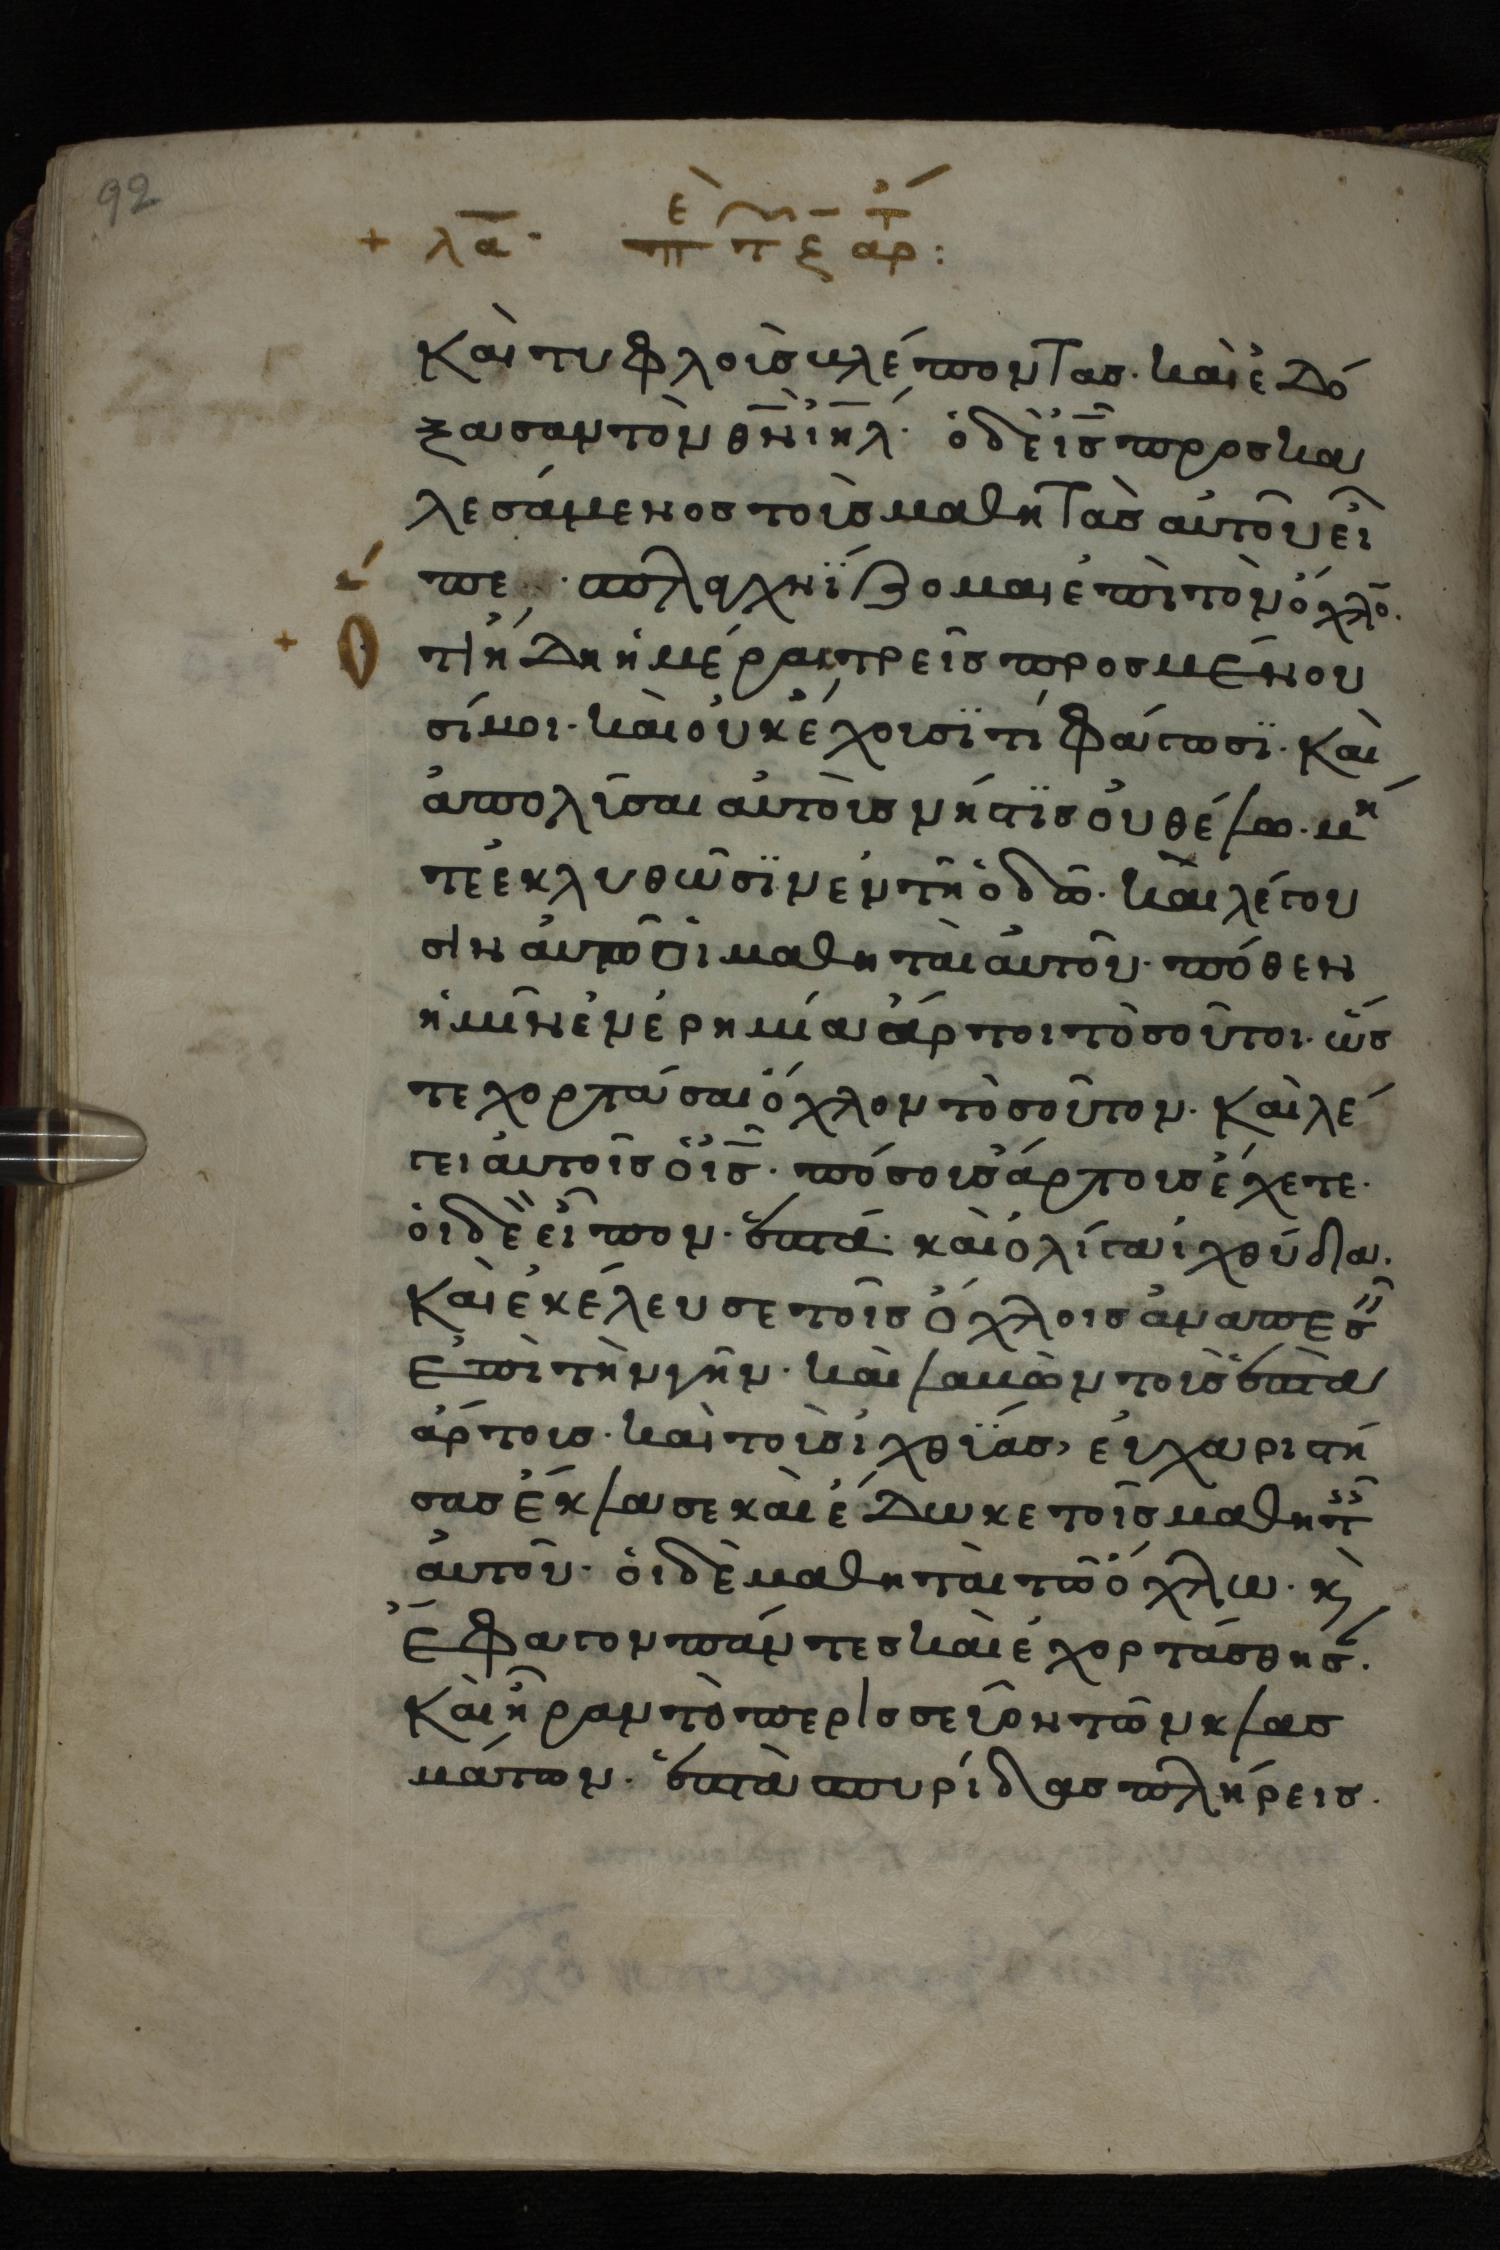 92
+ λα· πε τ ζ αρτ:
καὶ τυφλοὺς βλέποντας· καὶ ἐδό
ξασαν τὸν θν ιηλ· ὁ δὲ ις προσκα
λεσάμενος τοὺς μαθητὰς αὐτοῦ εἶ
πε · σπλαγχνίζομαι ἐπὶ τὸν ὄχλο·
+ τι ἤδη ἡμέραι τρεῖς προσμένου
σί μοι· καὶ οὐκ ἔχουσϊ τί φάγωσϊ· καὶ
ἀπολῦσαι αὐτοὺς νήστϊς οὐ θέλω· μή
πτε ἐκλυθῶσϊν ἐν τῆ ὁδῶ· καὶ λέγου
σιν αὐτῶ οἱ μαθηταὶ αὐτοῦ· πόθεν
ἡμῖν ἐν ἐρημία ἄρτοι τοσοῦτοι· ὥσ
τε χορτάσαι ὄχλον τοσοῦτον· καὶ λέ
γει αὐτοῖς ὁ ις· πόσους ἄρτους ἔχετε·
οἱ δὲ εἶπον· ἑπτά· καὶ ὀλίγα ἰχθύδια·
καὶ ἐκέλευσε τοῖς ὄχλοις ἀναπεσ
ἐπὶ τὴν γῆν· καὶ λαβὼν τοὺς ἑπτὰ
ἄρτους· καὶ τοὺς ἰχθϋάς, εὐχαριστή
σας ἔκλασε καὶ ἔδωκε τοῖς μαθητ
αὐτοῦ· οἱ δὲ μαθηταὶ τῶ ὄχλω· κὶ
ἔφαγον πάντες καὶ ἐχορτάσθησ·
καὶ ἦραν τὸ περισσεῦον τῶν κλασ
μάτων· ἑπτὰ σπυρίδας πλήρεις·